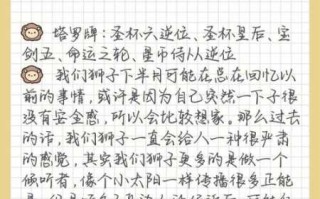 塔罗牌：圣杯六逆位、圣杯皇后、宝
剑五、命运之轮、星币侍从逆位
我们狮子下半月可能在总在回忆以
前的事情，或许是因为自己突然一下子很
没有安全感，所以会比较想家。那么过去
的话，我们狮子一直会给人一种很严肃
的感觉，其实我们狮子更多的是做一个
倾听者，像个小太阳一样传播很多正能